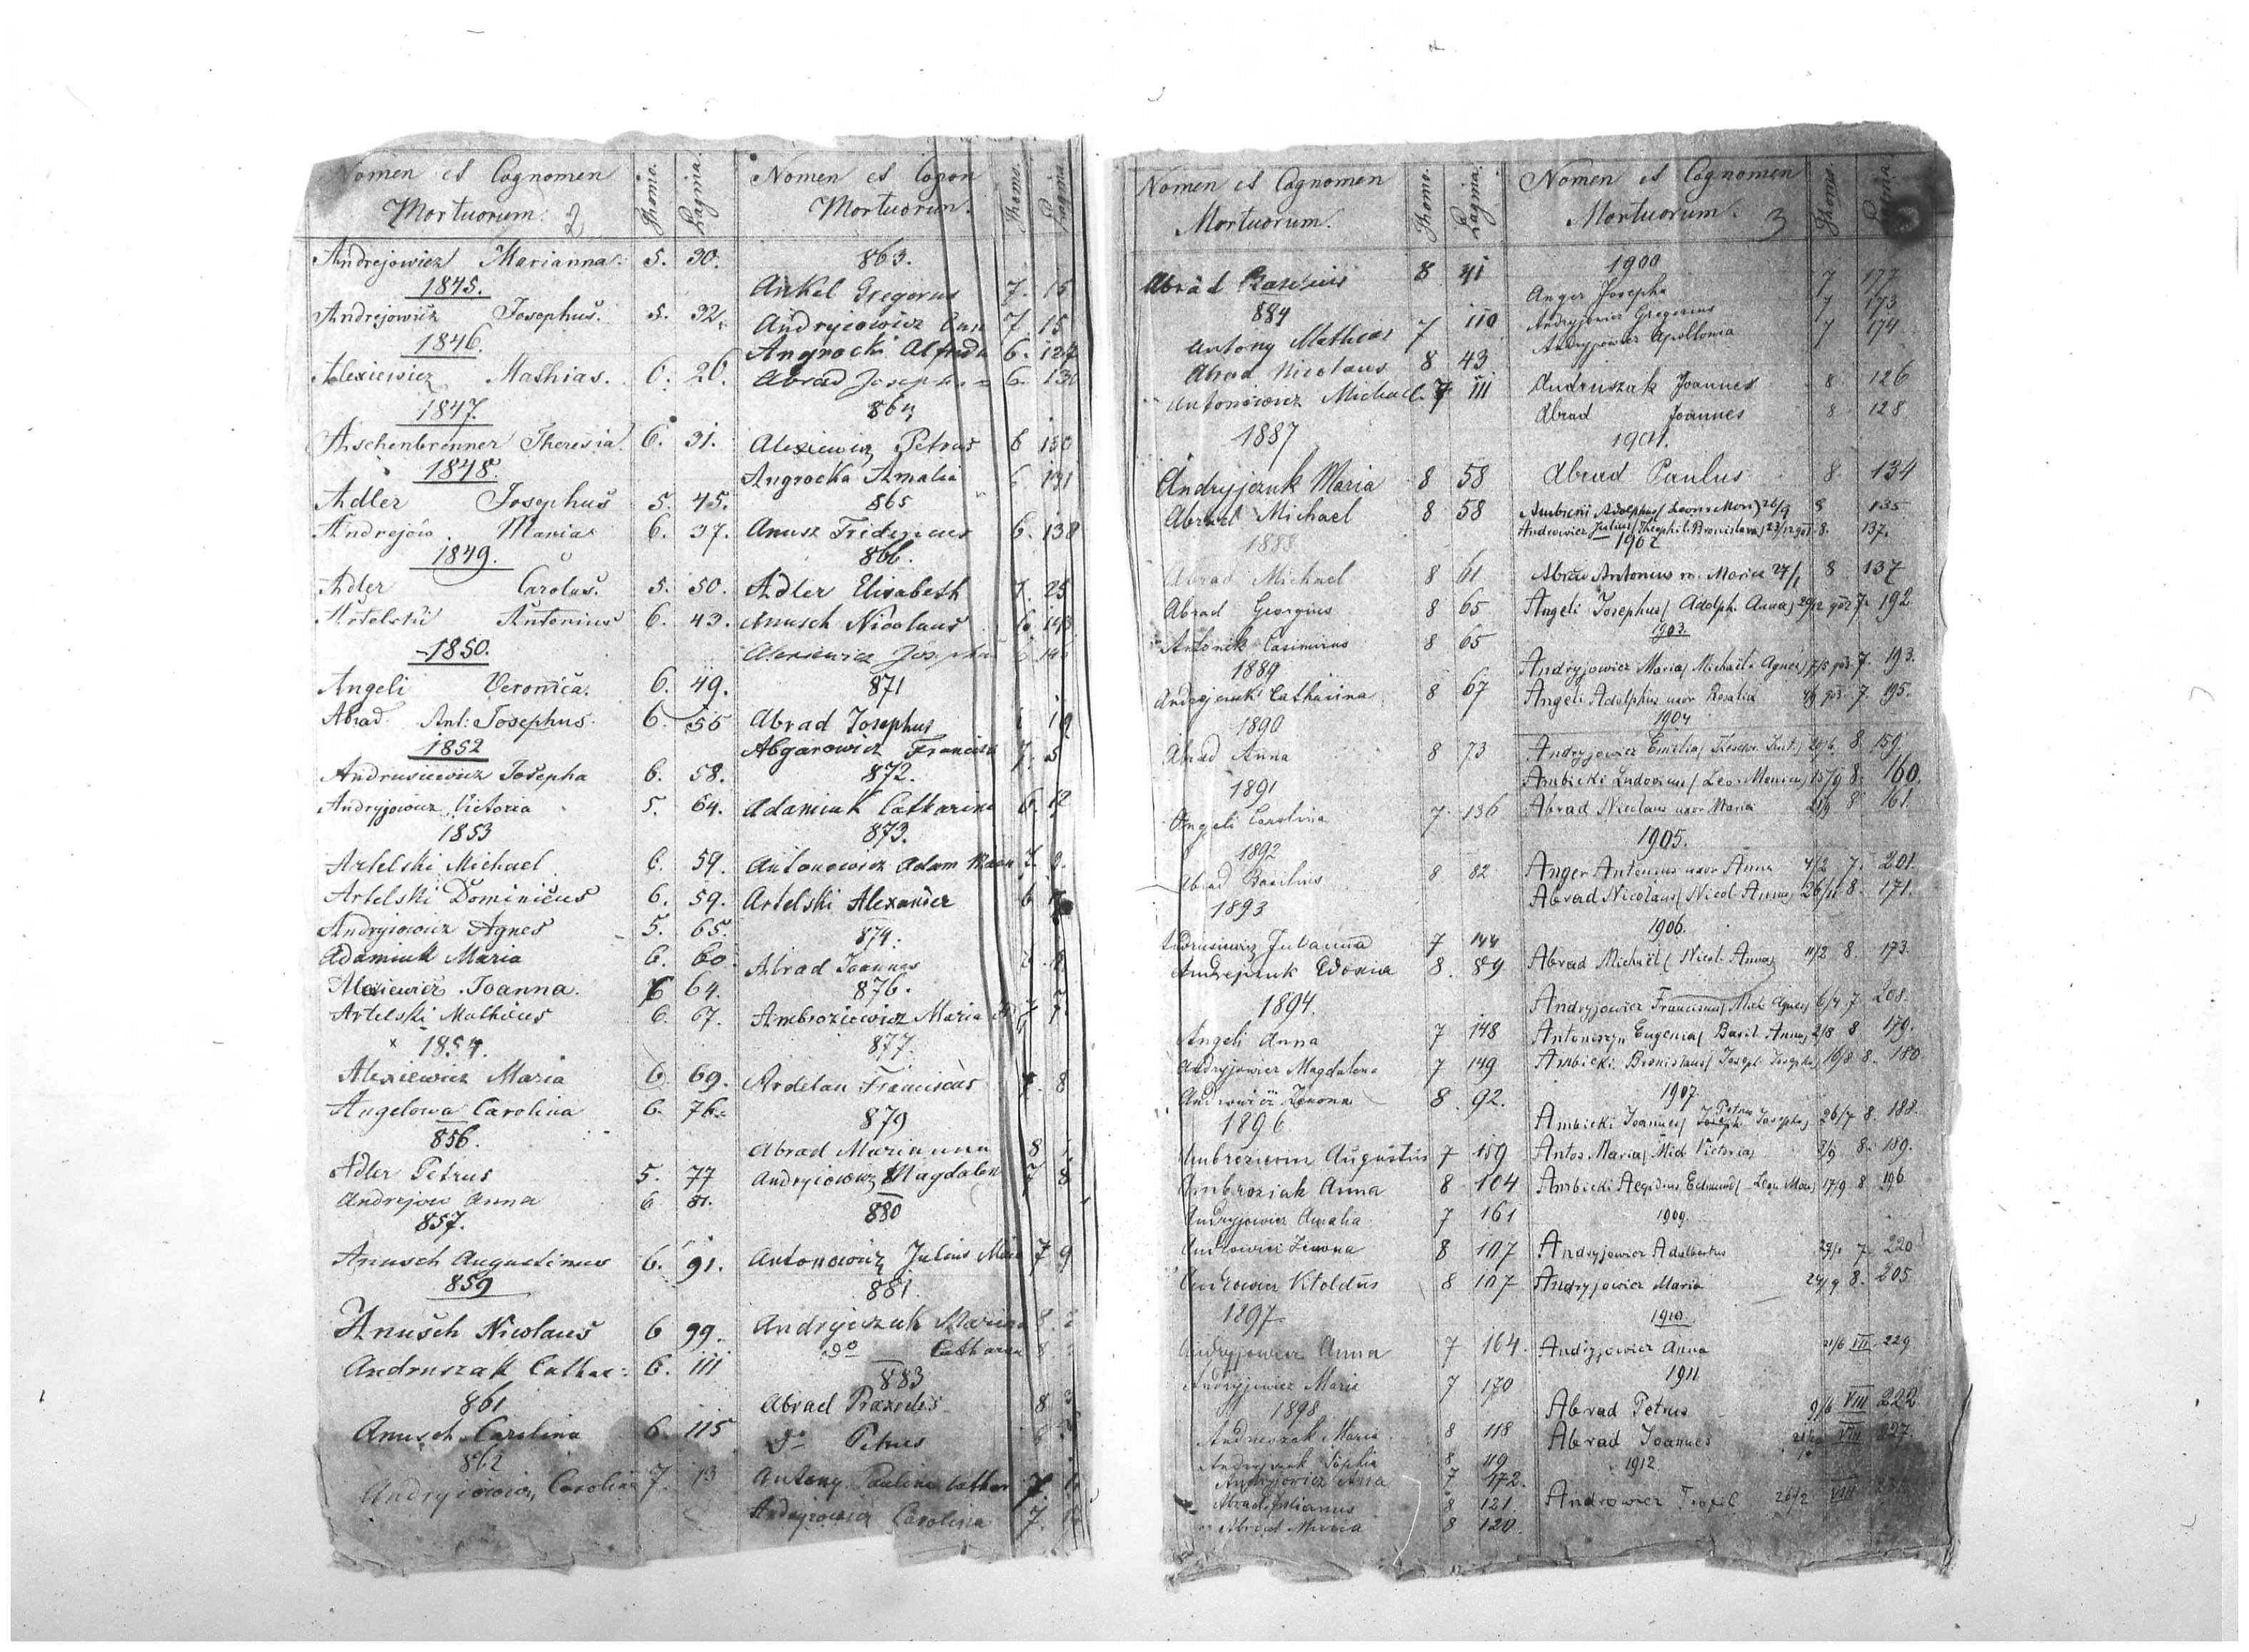 Nomen et Cognomen Mortuorum. 2 Thome. Pagina.
Andrejowicz Marianna. 5. 30.
1845.
Andrejowicz Josephus. 5. 32.
1846.
Alexiewicz Mathias. 6. 26.
1847.
Aschenbrenner Theresia. 6. 31.
1848.
Adler Josephus 5. 45.
Andrejów Maria 6. 37.
1849.
Adler Carolus. 5. 50.
Artelski Antonius 6. 43.
1850.
Angeli Veronica. 6. 49.
Abrad Ant: Josephus. 6. 55
1852
Andrusiewicz Josepha 6. 58.
Andryjowicz Victoria 5. 64.
1853
Artelski Michael 6. 59.
Artelski Dominicus 6. 59.
Andryiowicz Agnes 5. 65.
Adamiuk Maria 6. 60
Alexiewicz Joanna. 6 64.
Artelski Mathias 6. 67.
x 1854.
Alexiewicz Maria 6. 69.
Angelowa Carolina 6. 76.
856.
Adler Petrus 5. 77
Andrejow Anna 6 81.
857.
Anusch Augustinus 6. 91.
859
Anusch Nicolaus 6 99.
Andruszak Cathar: 6. 111
861
Anusch Carolina 6. 115
862
Andryiowicz Carolina 7. 13
Nomen et Cognom Mortuorum. Thome. Pagina
863.
Ankel Gregorus 7. 15
Andryiowicz Ann 7. 15
Angrocki Alfreda 6. 124
Abrad Josepha 6. 130
864
Alexiewicz Petrus 6 130
Angrocka Amalia 6 131
865
Anusz Fridericus 6. 138
866.
Adler Elisabeth 7. 25
Anusch Nicolaus 6 143
Alexiewicz Josepha 6
871
Abrad Josephus
Abgarowicz Francisc 7. 5
872.
Adamiuk Catharina 6.
873.
Antonowicz Adam 7.
Artelski Alexander 6
874.
Abrad Joannes
876.
Ambroziewicz Maria 7 7
877.
Ardelan Franciscus 7. 8
879
Abrad Marianna 8
Andryiowicz Magdalen 7 8
880
Antonowicz Julius 7 9
881.
Andryiczuk Marina 8.
do Catharina 8
883
Abrad Praxedis 8 3
do Petrus
Antony Paulina Cathar 7
Andryiowicz Carolina 7.
Nomen et Cognomen Mortuorum. Thome. Pagina.
Abrad 8 41
884
Antony Mathias 7 110
Abrad Nicolaus 8 43
Antonowicz Michael 7 111
1887
Andryjczuk Maria 8 58
Abrad Michael 8 58
1888
Abrad Michael 8 61
Abrad Georgius 8 65
Antonik Casimirus 8 65
1889
Andryjczuk Catharina 8 67
1890
Abrad Anna 8 73
1891
Angeli Carolina 7. 136
1892
Abrad Basilius 8 82
1893
Andrusiewicz Julianna 7 144
8. 89
1894.
Angeli Anna 7 148
Andryjowicz Magdalena 7 149
Androwicz Zenona 8. 92.
1896.
Ambroziewicz Augustus 7 159
Ambroziak Anna 8 104
Andryjowicz Amalia 7 161
Androwicz Zenona 8 107
Androwicz Vitoldus 8 107
1897.
Andryjowicz Anna 7 164.
Andryjowicz Maria 7 170
1898
Andruszak Maria 8 118
Sophia 8 119
Andryjowicz Anna 7 172.
Abrad Julianus 8 121.
Abrad Maria 8 120.
Nomen et Cognomen Mortuorum. 3 Thomus. Pagina
1900
Anger Josepha 7 177
Andryjowicz Gregorius 7 173
Andryjowicz Apollonia 7 174
Andruszak Joannes 8 126
Abrad Joannes 8 128
1901.
Abrad Paulus 8. 134
Ambicki Adolphus/ Leon Mon) 26/9 8 135
Androwicz Julius/ Theophil. Bronislava) 23/12 901 8. 137.
1902
Abrad Antonius m. Maria 27/1 8 137
Angeli Josephus/ Adolph. Anna) 29/12 902 7. 192
1903.
Andryjowicz Maria/ Michaël. Agnes) 7/5 903 7. 193.
Angeli Adolphus uxor Rosalia 903 7. 195.
1904
Andryjowicz Emilia/ 8. 159.
Ambicki Ludovicus/ Leo Monica) 15/9 8. 160.
Abrad Nicolaus uxor Maria 8 161.
1905.
Anger Antonius uxor Anna 4/2 7. 201.
Abrad Nicolaus/ Nicol Anna) 26/11 8. 171.
1906.
Abrad Michaël/ Nicol. Anna) 11/2 8. 173.
Andryjowicz Franciscus/ Mich Agnes) 6/4 7. 208.
Antonczyn Eugenia/ Basil. Anna) 2/8 8 179.
Ambicki Bronislaus/ Joseph Josepha) 19/8 8. 180
1907.
Ambicki Joannes/ Petrus Josepha) 26/7 8. 188.
Antos Maria/ Mich Victoria) 2/9 8. 189.
Ambicki Aegidius Edmund/ Leon Mon) 17/9 8. 196
1909.
Andryjowicz Adalbertus 7. 220
Andryjowicz Maria 24/9 8. 205
1910.
Andryjowicz Anna 21/6 VII 229
1911
Abrad Petrus 9/6 VIII 222
Abrad Joannes VIII 227
1912
Androwicz Teofil 26/2 VIII